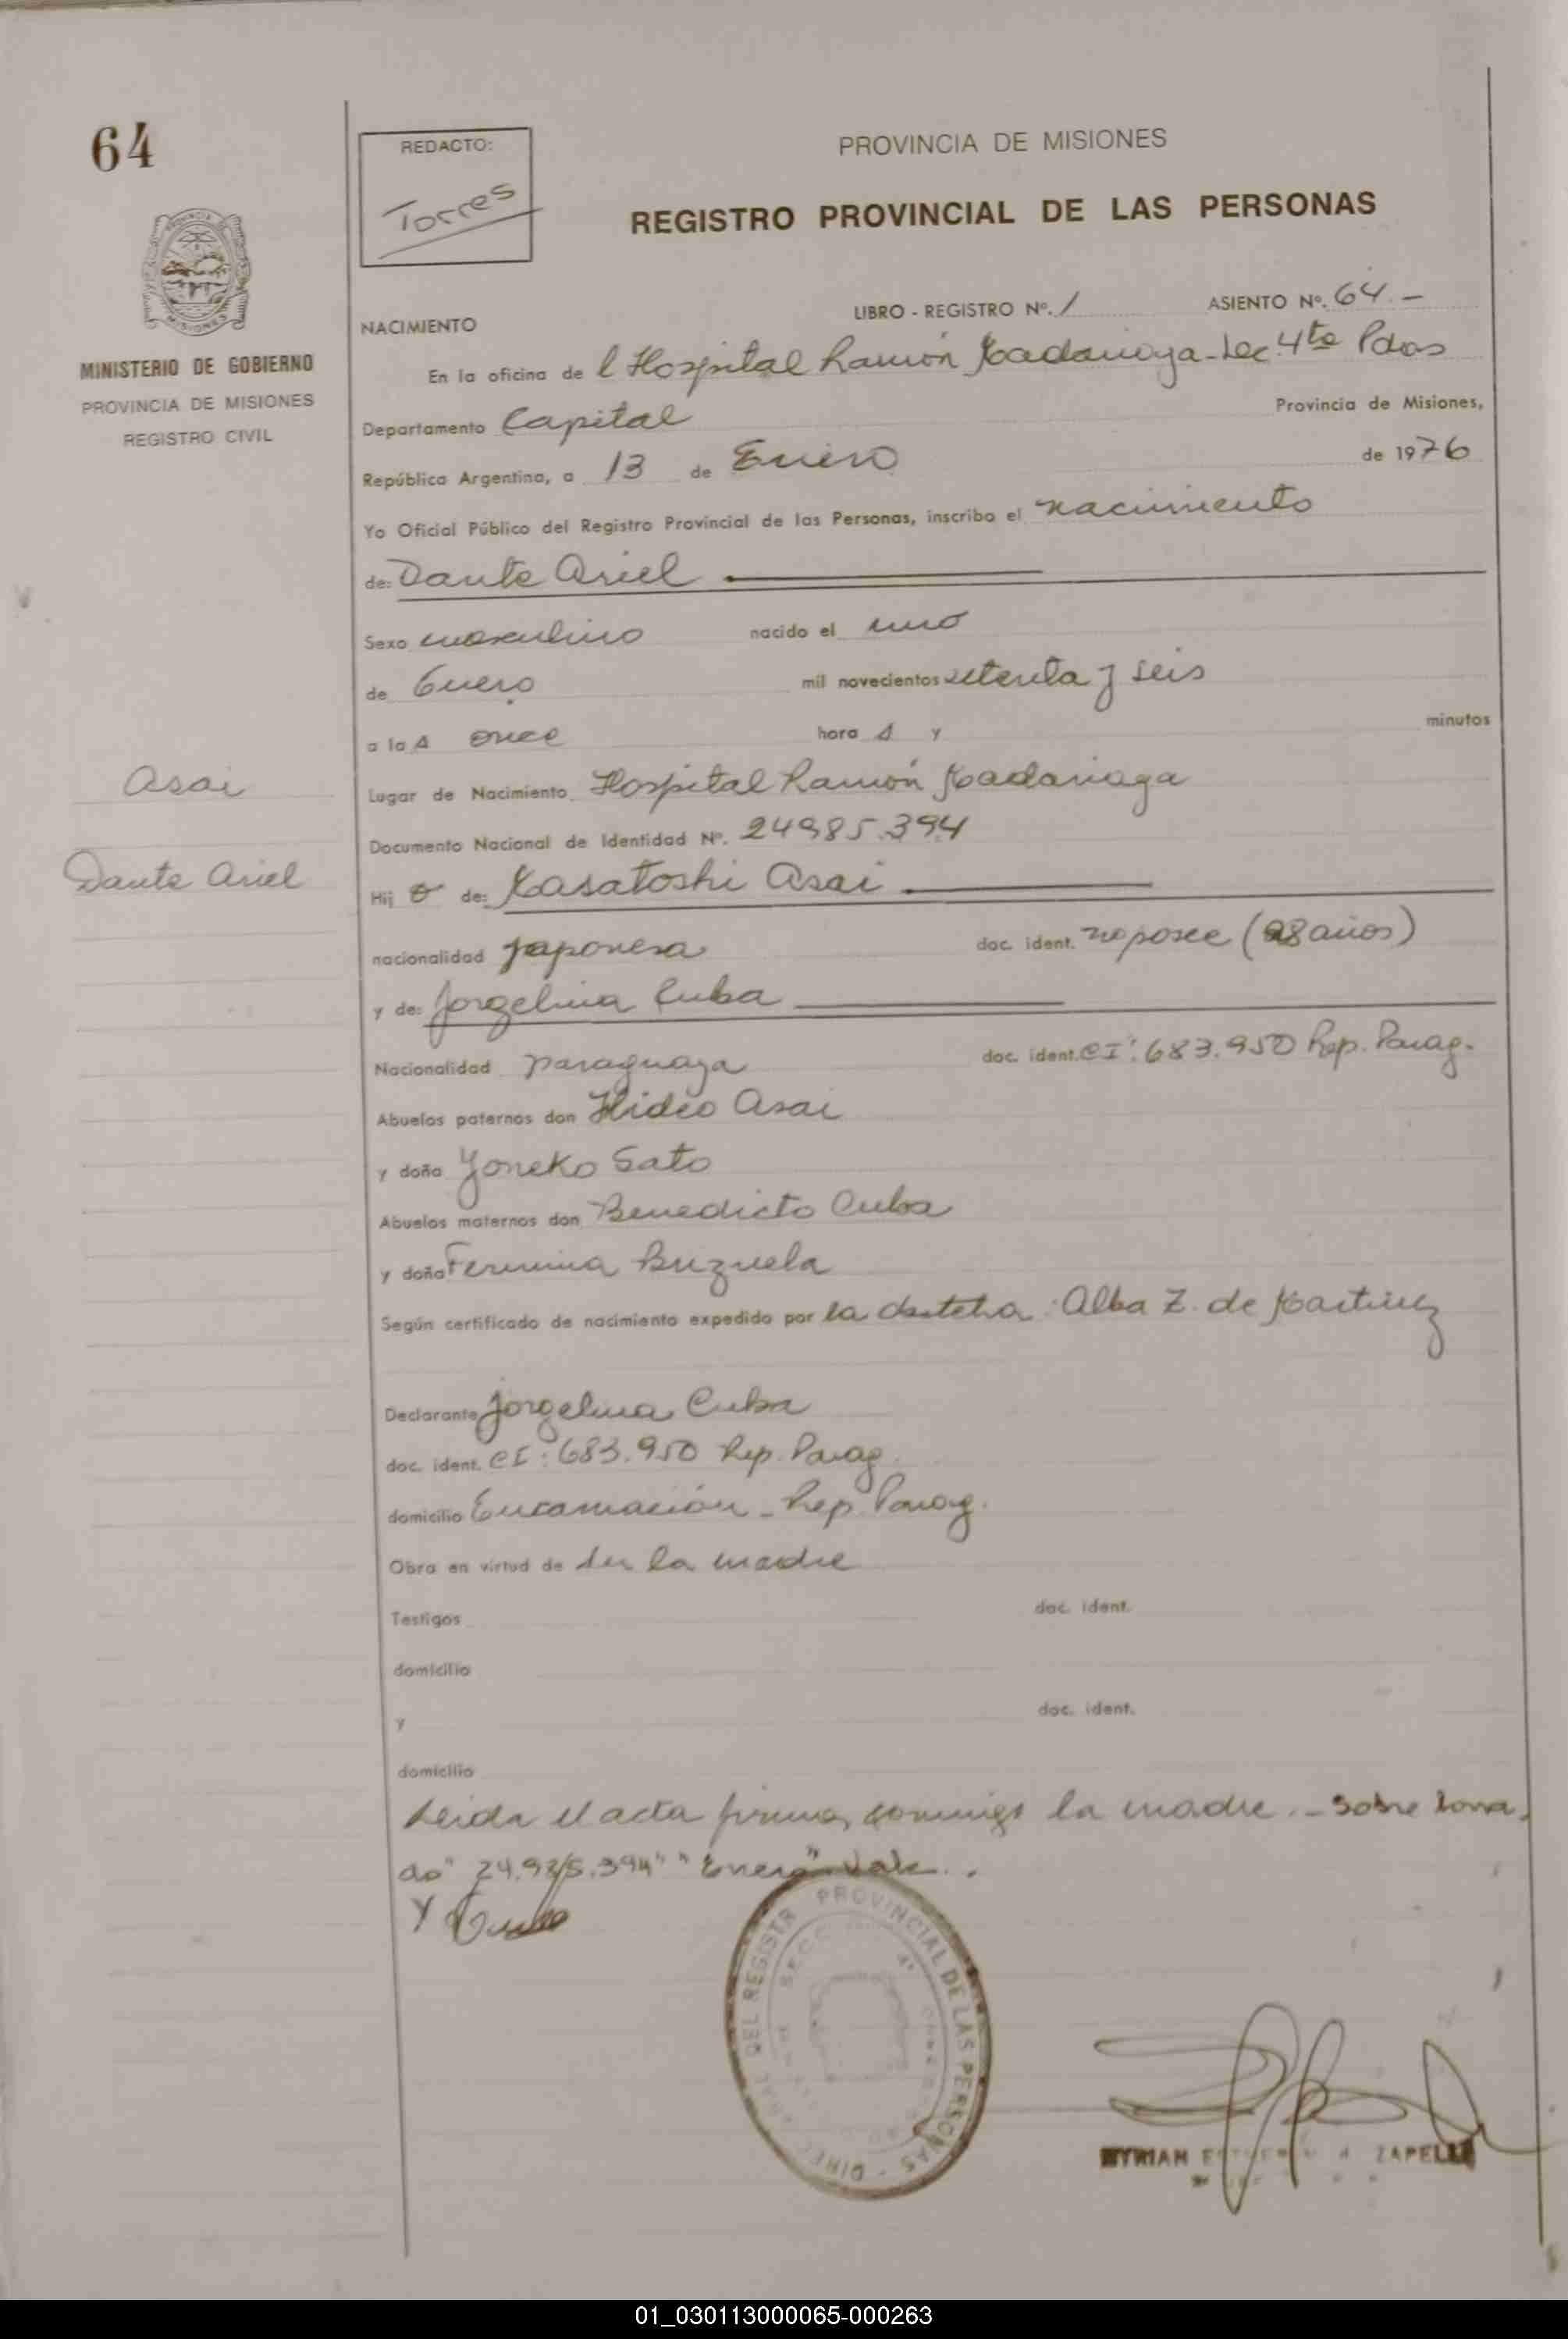 64
REDACTO:
Torres
PROVINCIA DE MISIONES
REGISTRO PROVINCIAL DE LAS PERSONAS
MINISTERIO DE GOBIERNO
PROVINCIA DE MISIONES
REGISTRO CIVIL
NACIMIENTO LIBRO - REGISTRO Nº. 1 ASIENTO Nº. 64.-
En la oficina de l Hospital Ramón Madariaga - Sec. 4ta Pdas
Departamento Capital Provincia de Misiones,
República Argentina, a 13 de Enero de 1976
Yo Oficial Público del Registro Provincial de las Personas, inscribo el nacimiento
de: Dante Ariel
Sexo masculino nacido el uno
de Enero mil novecientos setenta y seis
a la s once hora s y minutos
Lugar de Nacimiento Hospital Ramón Madariaga
Documento Nacional de Identidad Nº. 24985.394
Asai
Dante Ariel
Hij o de: Masatoshi Asai
nacionalidad japonesa doc. ident. no posee (28 años)
y de: Jorgelina Cuba
Nacionalidad paraguaya doc. ident. CI: 683.950 Rep. Parag.
Abuelos paternos don Hideo Asai
y doña Yoneko Sato
Abuelos maternos don Benedicto Cuba
y doña Fermina Brizuela
Según certificado de nacimiento expedido por la obstetra: Alba Z. de Martinez
Declarante Jorgelina Cuba
doc. ident. CI: 683.950 Rep. Parag
domicilio Encarnación - Rep. Parag.
Obra en virtud de ser la madre
Testigos doc. ident.
domicilio
y doc. ident.
domicilio
Leida el acta firma conmigo la madre.- Sobre borra
do" 24.985.394" "Enero" Vale.
DEL REGISTR PROVINCIAL DE LAS PERSONAS - DIREC
SECC 4ª
MYRIAN ZAPELLI
01_030113000065-000263